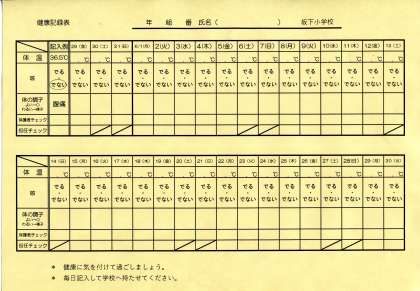 健康記録表 年 組 番 氏名( ) 坂下小学校
記入例 29(金) 30(土) 31(日) 6/1(月) 2(火) 3(水) 4(木) 5(金) 6(土) 7(日) 8(月) 9(火) 10(水) 11(木) 12(金) 13(土)
体 温 36.5℃ ℃ ℃ ℃ ℃ ℃ ℃ ℃ ℃ ℃ ℃ ℃ ℃ ℃ ℃ ℃ ℃
咳 でる でる でる でる でる でる でる でる でる でる でる でる でる でる でる でる でる
でない でない でない でない でない でない でない でない でない でない でない でない でない でない でない でない でない
体の調子 腹痛
よい→○
わるい→様子
保護者チェック
担任チェック
14(日) 15(月) 16(火) 17(水) 18(木) 19(金) 20(土) 21(日) 22(月) 23(火) 24(水) 25(木) 26(金) 27(土) 28(日) 29(月) 30(火)
体 温 ℃ ℃ ℃ ℃ ℃ ℃ ℃ ℃ ℃ ℃ ℃ ℃ ℃ ℃ ℃ ℃ ℃
咳 でる でる でる でる でる でる でる でる でる でる でる でる でる でる でる でる でる
でない でない でない でない でない でない でない でない でない でない でない でない でない でない でない でない でない
体の調子
よい→○
わるい→様子
保護者チェック
担任チェック
* 健康に気を付けて過ごしましょう。
* 毎日記入して学校へ持たせてください。